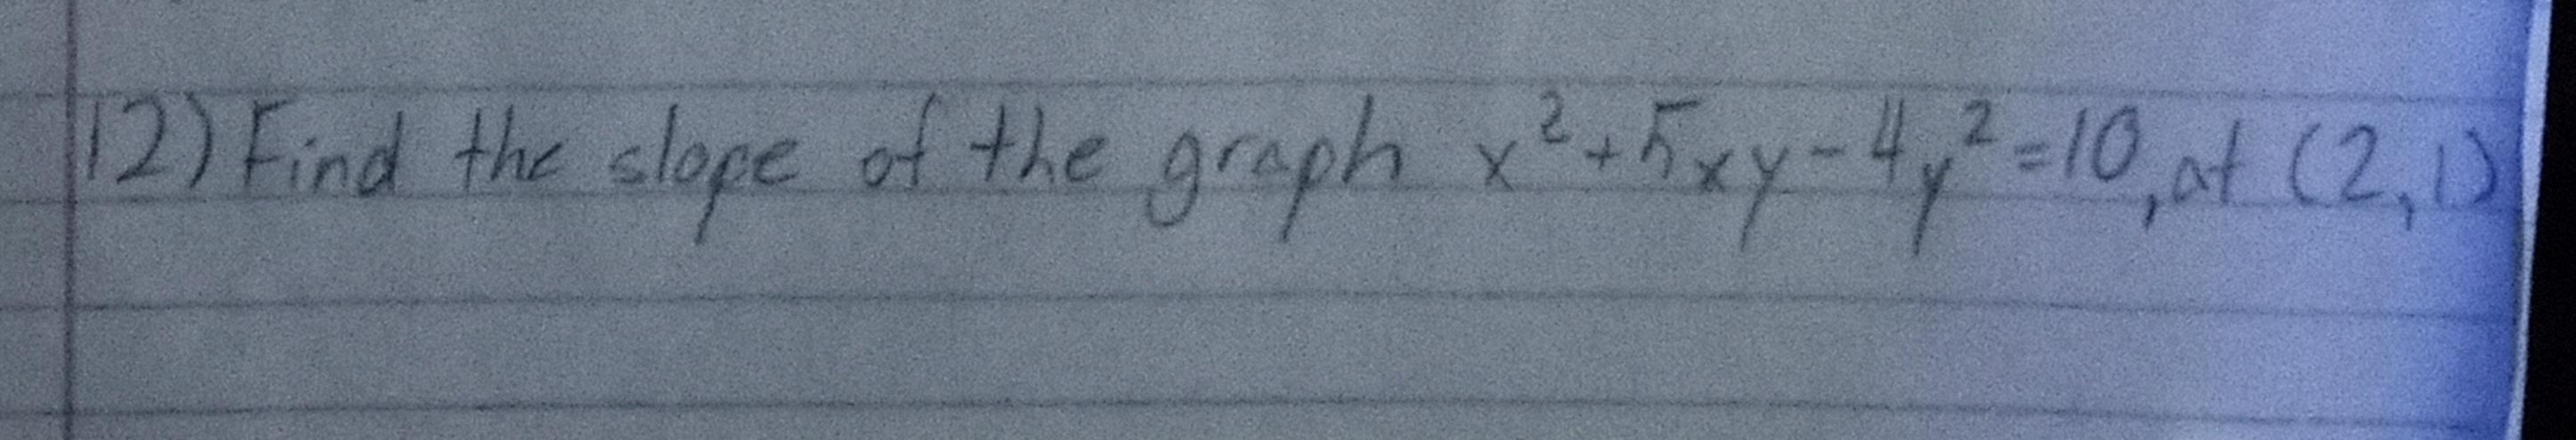 12) Find the slope of the graph x²+5xy-4y²=10, at (2,1)